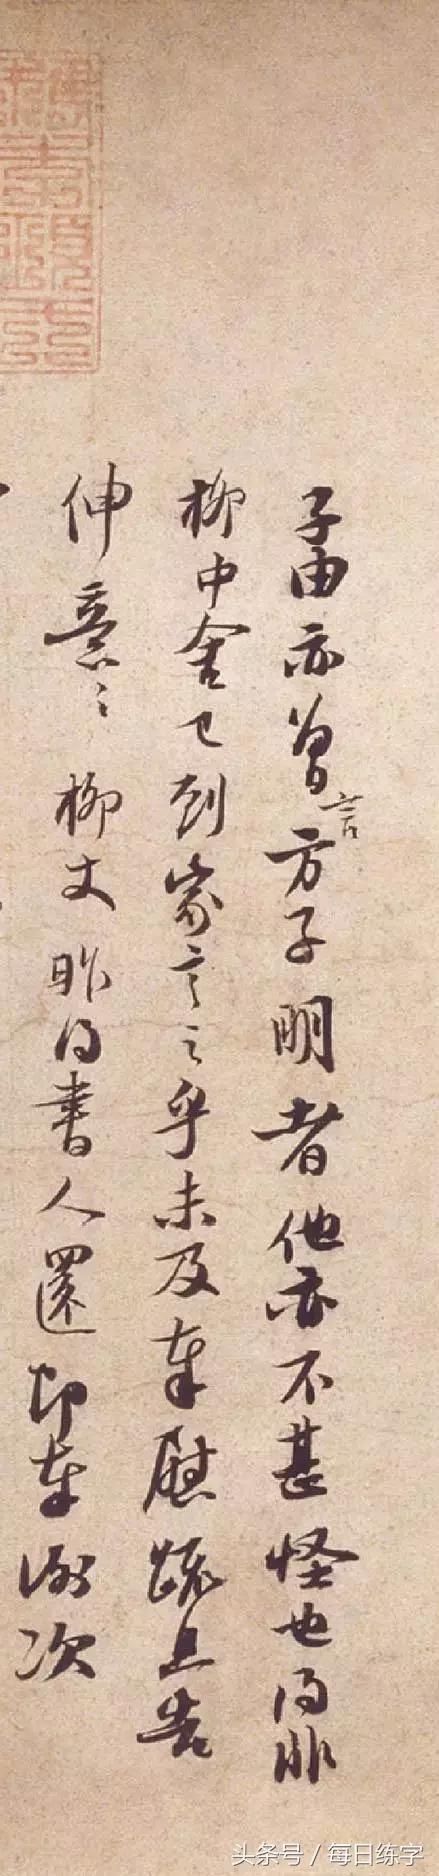 子由亦曾言方子明者他亦不甚怪也得非
柳中舍已到家言之乎未及奉慰疏且告
伸意〻柳丈昨得書人還即奉謝次
头条号 / 每日练字